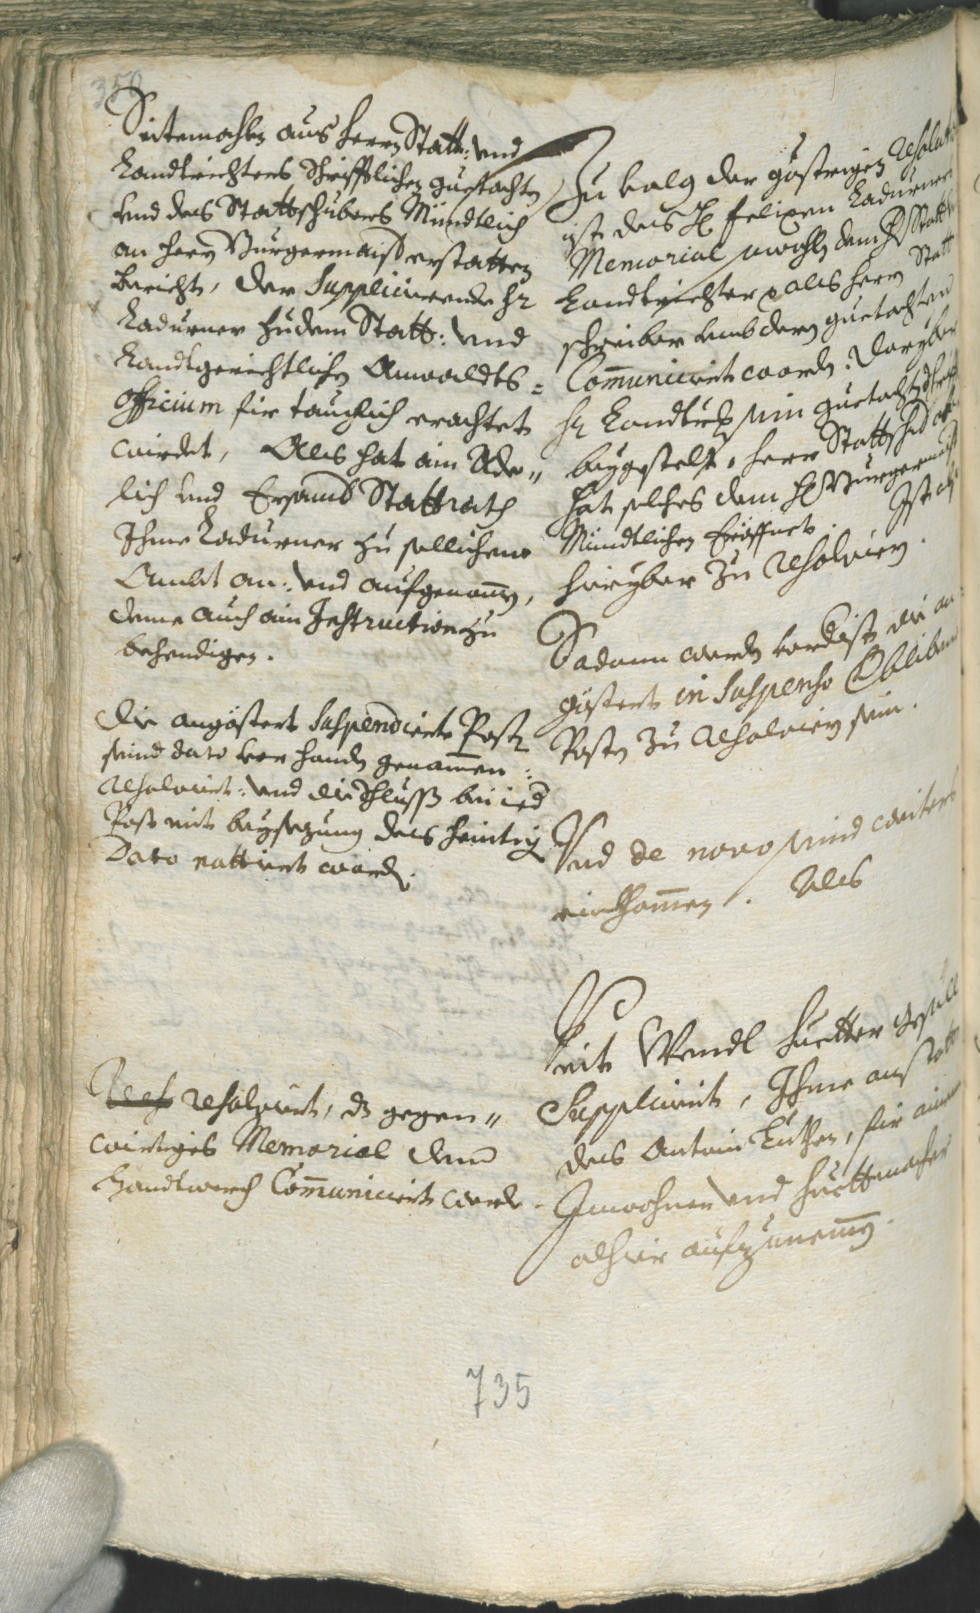 350
Seitemahlen aus Herrn Statt: vnd
Landtrichters Schrifftlichen guetachten
vnd des Stattschreibers Mündtlich
an Herrn Burgermaister erstatten
Bericht, der Supplicierende Hr
Ladurner zu dem Statt: vnd
Landtgerichtlichen Anwaldts=
Officium für tauglich erachtet
wirdet, Als hat ain Ade„
lich vnd Ersamb Stattrath
Ihme Ladurner zu sollichem
Ambt an: vnd aufgenomen,
deme auch ain Instruction zu
behendigen.
Die angösterts Suspendierte Posten
seind dato vor handen genommen:
Resolviert: vnd die Schlüss bei ied
Post mit beysezung des heintigen
Dato nottiert worden.
Resolviert, dz gegen„
wirtiges Memorial dem
Handtwerch Communiciert werde.
Zu volg der göstrigen Resolution
ist des H: Felixen Ladurners
Memorial sowohl dem H: Statt
Landtrichter, als Herrn Statt
schreiber vmb deren guetachten
Communiciert worden. Daryber
H: Landtrichter sein guetachten
beygestelt, Herr Stattschreiber
hat solches dem H: Burgermaister
Mündtlichen Eröffnet. Ist also
hieryber zu Resolvieren.
Sodann werden vordrist die an
gösterts in Suspenso Verblibene
Posten zu Resolvieren sein.
Vnd de novo seind weiters
einkhomen. Als
Veit Wendl Huetter Gesell
Suppliciert, Ihme anstatt
des Antoni Luther, für ainen
Inwohner vnd Huettmacher
alhier aufzunemen.
735